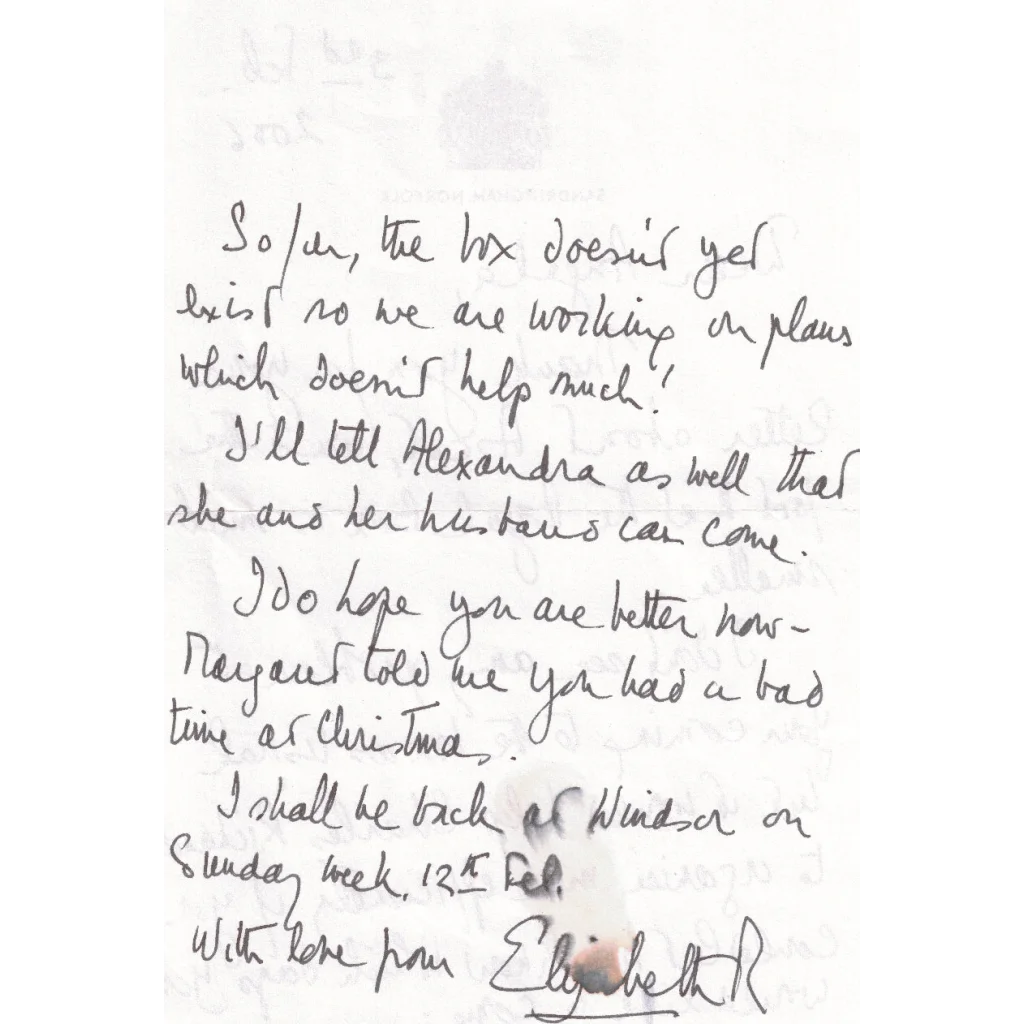 So far, the box doesn't yet
exist so we are working on plans
which doesn't help much!
I'll tell Alexandra as well that
she and her husband can come.
I do hope you are better now -
Margaret told me you had a bad
time at Christmas.
I shall be back at Windsor on
Sunday week. 12th Feb.
With love from Elizabeth R